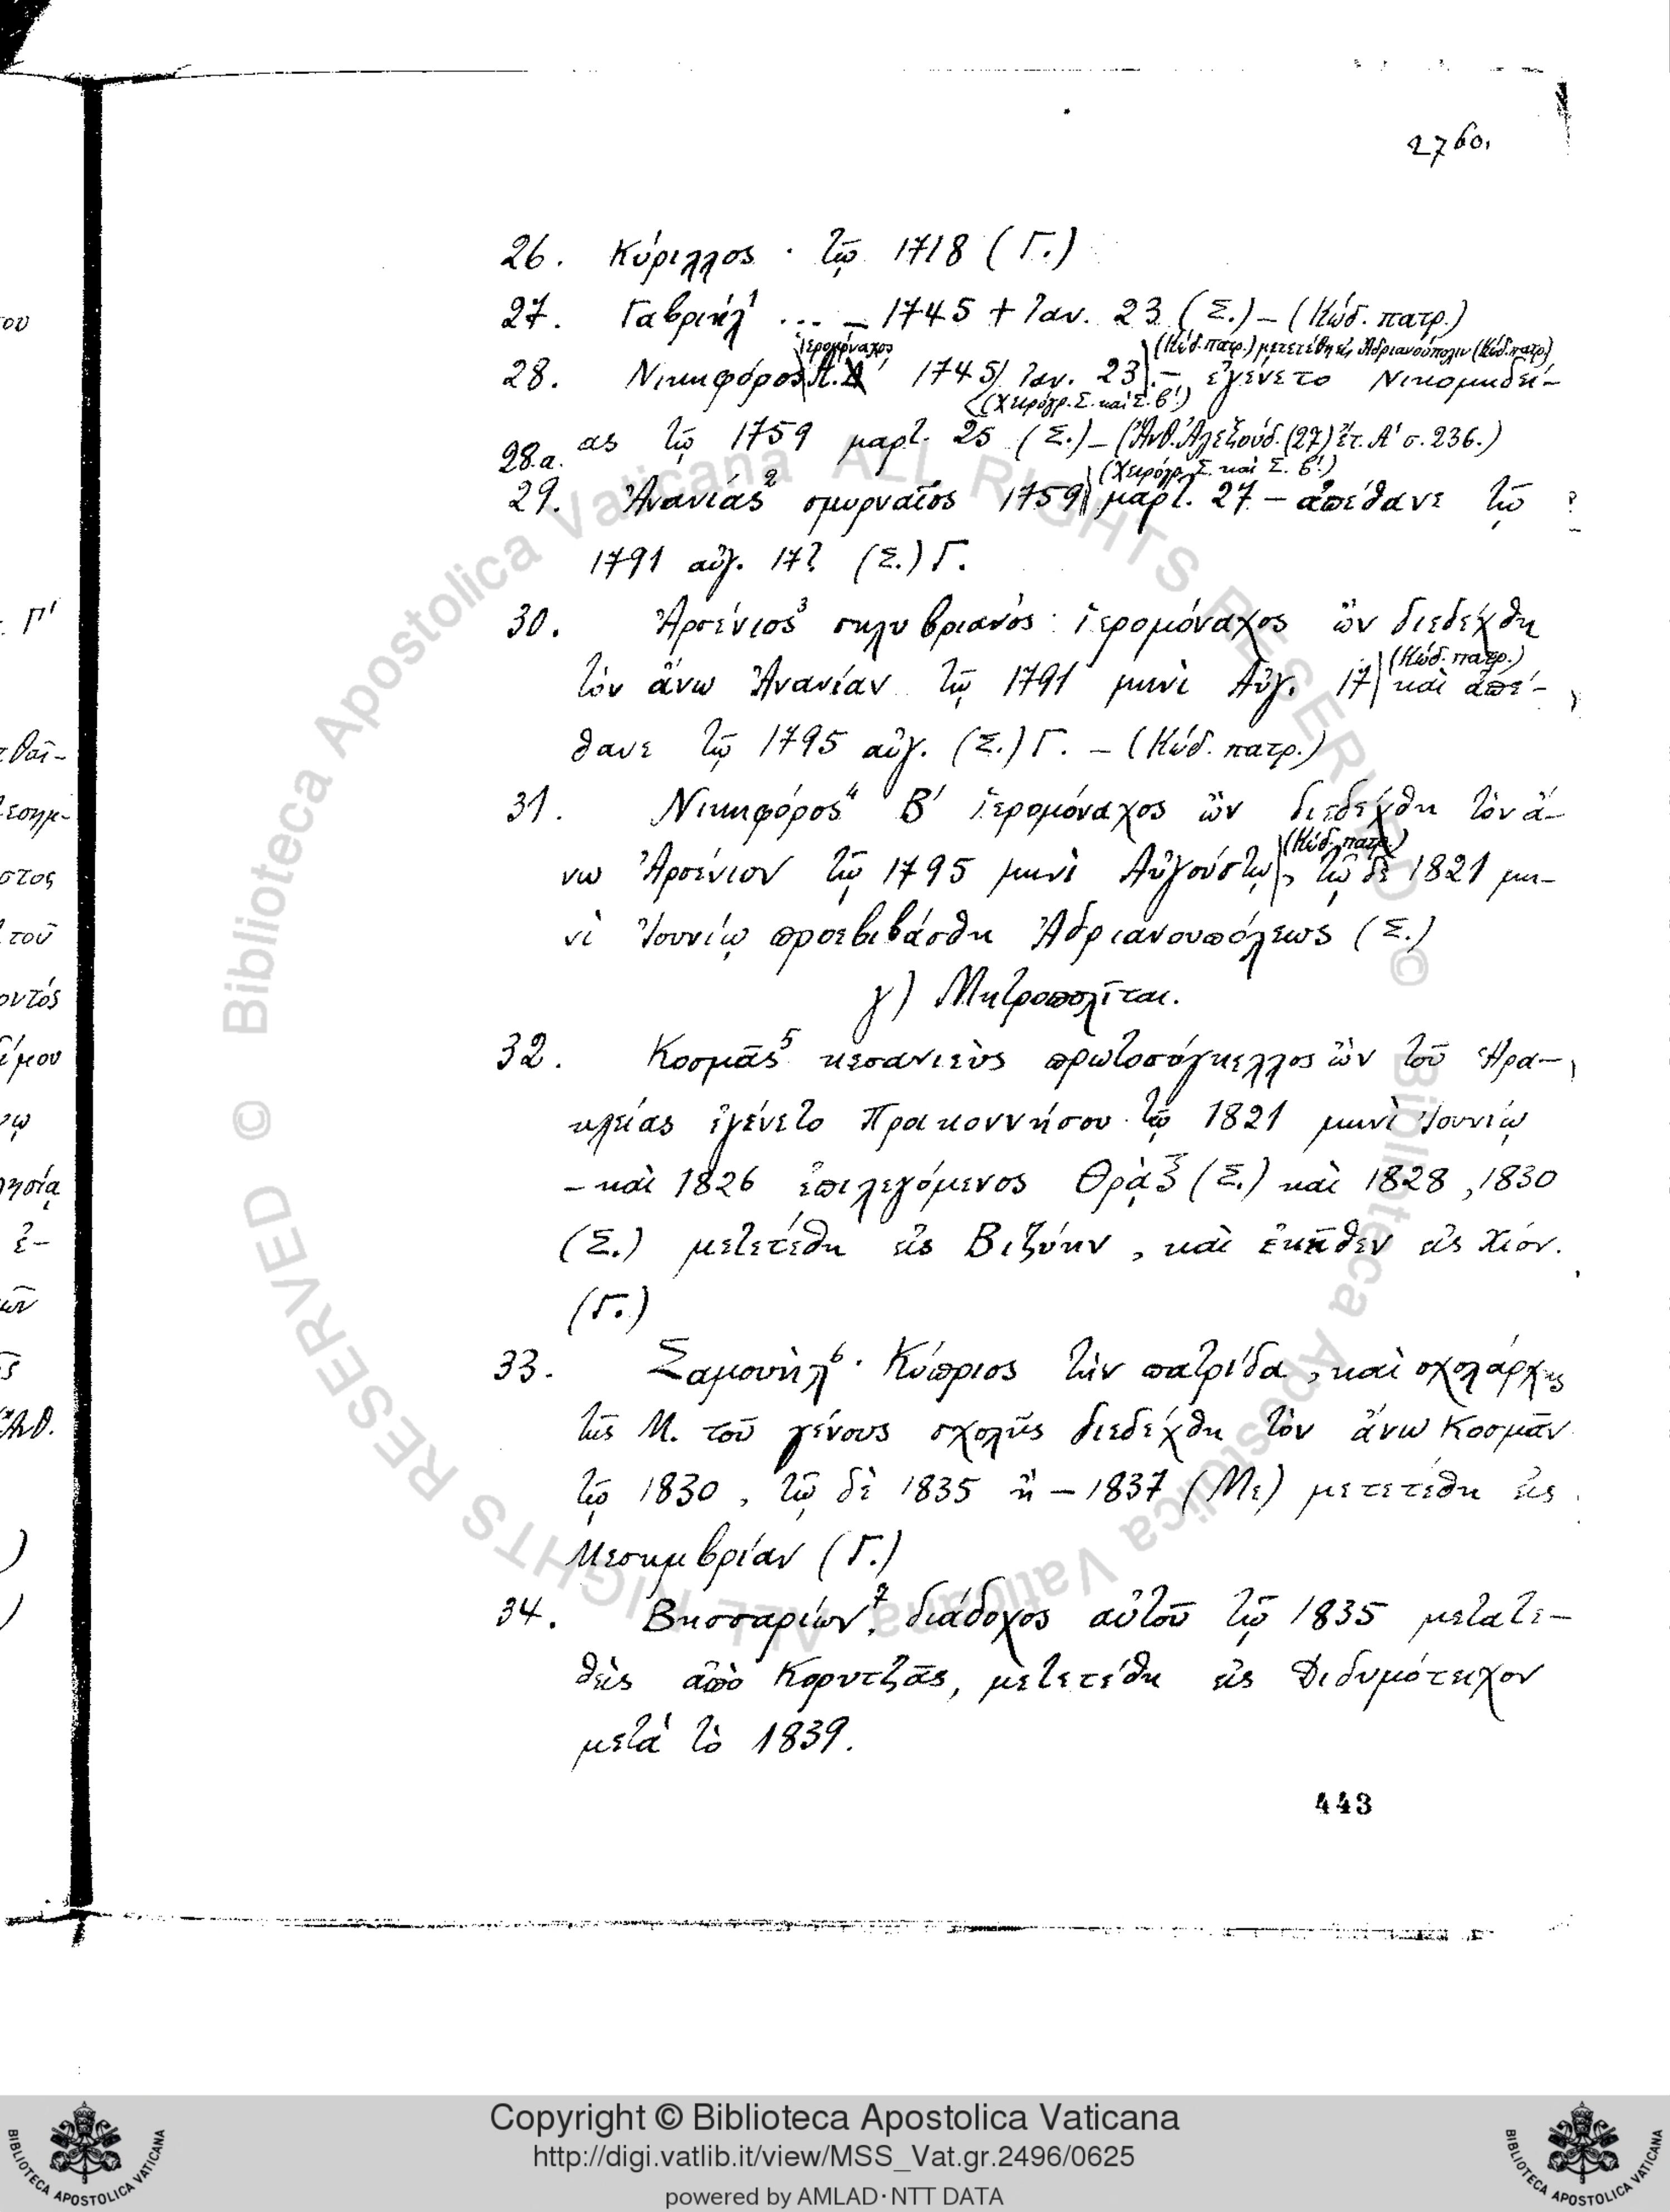 2760.
26. Κύριλλος · τῷ 1718 (Γ.)
27. Γαβριὴλ¹ ... — 1745 + Ἰαν. 23 (Σ.) — (Κώδ. πατρ.)
ἱερομόναχος (Κώδ. πατρ.) μετετέθη εἰς Ἀδριανούπολιν (Κώδ. πατρ.)
28. Νικηφόρος Α. 1745 Ἰαν. 23. — ἐγένετο Νικομηδεί-
(Χειρόγρ. Σ. καὶ Σ. β'.)
28.a. ας τῷ 1759 μαρτ. 25 (Σ.) — (Ἀνθ. Ἀλεξούδ. (27) ἔτ. Α' σ. 236.)
(Χειρόγρ. Σ. καὶ Σ. β'.)
29. Ἀνανίας² σμυρναῖος 1759 μαρτ. 27 — ἀπέθανε τῷ
1791 αὐγ. 17? (Σ.) Γ.
30. Ἀρσένιος³ σηλυβριανός· ἱερομόναχος ὢν διεδέχθη
(Κώδ. πατρ.)
τὸν ἄνω Ἀνανίαν τῷ 1791 μηνὶ Αὐγ. 17 καὶ ἀπέ-
θανε τῷ 1795 αὐγ. (Σ.) Γ. — (Κώδ. πατρ.)
31. Νικηφόρος⁴ Β' ἱερομόναχος ὢν διεδέχθη τὸν ἄ-
(Κώδ. πατρ.)
νω Ἀρσένιον τῷ 1795 μηνὶ Αὐγούστῳ, τῷ δὲ 1821 μη-
νὶ Ἰουνίῳ προεβιβάσθη Ἀδριανουπόλεως (Σ.)
γ) Μητροπολῖται.
32. Κοσμᾶς⁵ κεσανιεὺς πρωτοσύγκελλος ὢν τοῦ Ἡρα-
κλείας ἐγένετο Προικοννήσου τῷ 1821 μηνὶ Ἰουνίῳ
— καὶ 1826 ἐπιλεγόμενος Θρᾲξ (Σ.) καὶ 1828, 1830
(Σ.) μετετέθη εἰς Βιζύην, καὶ ἐκεῖθεν εἰς Χίον.
(Γ.)
33. Σαμουὴλ⁶· Κύπριος τὴν πατρίδα, καὶ σχολάρχης
τῆς Μ. τοῦ γένους σχολῆς διεδέχθη τὸν ἄνω Κοσμᾶν
τῷ 1830, τῷ δὲ 1835 ἢ — 1837 (Με) μετετέθη εἰς
Μεσημβρίαν (Γ.)
34. Βησσαρίων⁷, διάδοχος αὐτοῦ τῷ 1835 μετατε-
θεὶς ἀπὸ Κορυτζᾶς, μετετέθη εἰς Διδυμότειχον
μετὰ τὸ 1839.
443
© Biblioteca Apostolica Vaticana ALL RIGHTS RESERVED © Biblioteca Apostolica Vaticana ALL RIGHTS RESERVED
Copyright © Biblioteca Apostolica Vaticana
http://digi.vatlib.it/view/MSS_Vat.gr.2496/0625
powered by AMLAD·NTT DATA
BIBLIOTECA APOSTOLICA VATICANA
BIBLIOTECA APOSTOLICA VATICANA